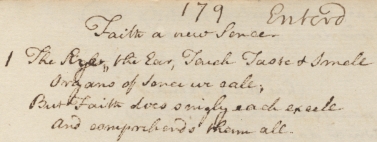 179 Enterd
Faith a new Sence
1 The Eye, the Ear, Touch Taste & Smell
Organs of Sence we call,
But Faith does singly each excell
And comprehends them all.